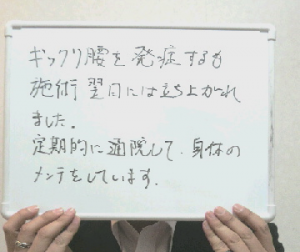 ギックリ腰を発症するも
施術翌日には立ち上がれ
ました。
定期的に通院して、身体の
メンテをしています。